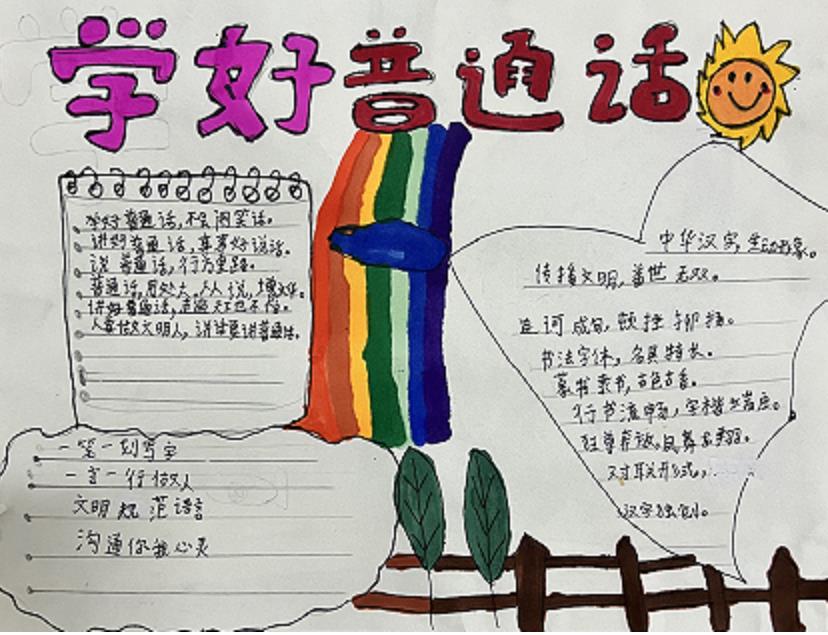 学好普通话
学好普通话,不会闹笑话。
讲好普通话,事事好说话。
说普通话,行万里路。
普通话,用处大,人人说,
讲好普通话,走遍天下也不怕。
人要做文明人,说话要讲普通话。
一笔一划写字
一言一行做人
文明规范语言
沟通你我心灵
中华汉字,生动形象。
传播文明,盖世无双。
造词成句,顿挫抑扬。
书法字体,各具特长。
篆书隶书,古色古香。
行书流畅,宋楷大方。
狂草奔放,
对联形式,
汉字独创。